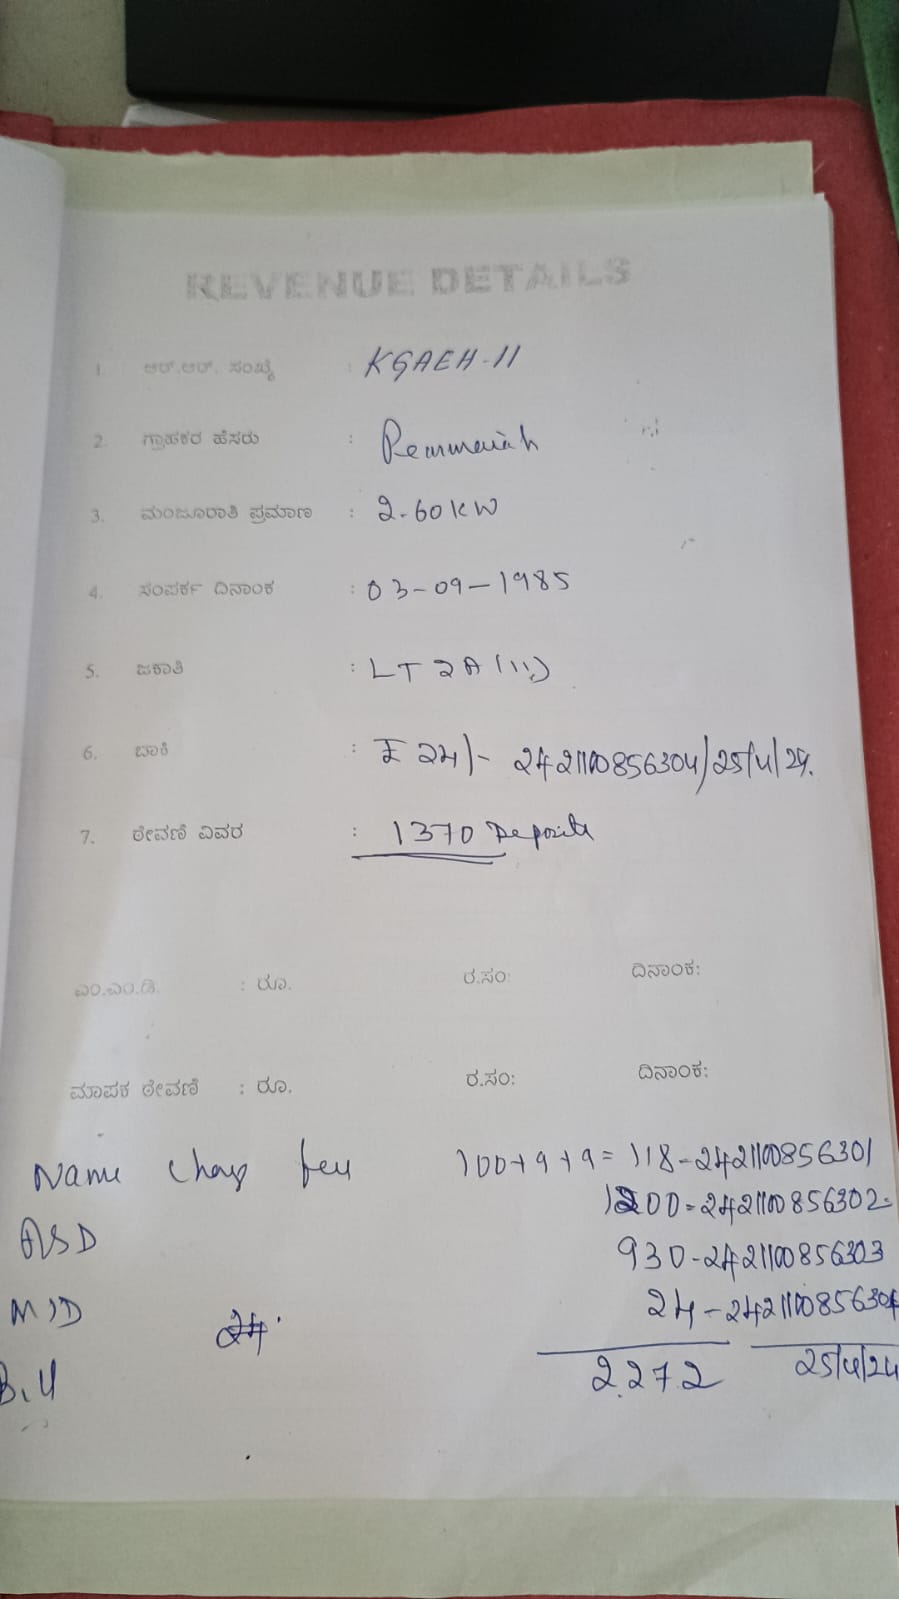 REVENUE DETAILS
1. ಆರ್.ಆರ್. ಸಂಖ್ಯೆ : KGAEH-11
2. ಗ್ರಾಹಕರ ಹೆಸರು :
3. ಮಂಜೂರಾತಿ ಪ್ರಮಾಣ : 2.60 KW
4. ಸಂಪರ್ಕ ದಿನಾಂಕ : 03-09-1985
5. ಜಕಾತಿ : LT 2A (ii)
6. ಬಾಕಿ : ₹ 24/- 2421100856304/25/4/24.
7. ಠೇವಣಿ ವಿವರ : 1370 Deposit
ಎಂ.ಎಂ.ಡಿ. : ರೂ. ರ.ಸಂ: ದಿನಾಂಕ:
ಮಾಪಕ ಠೇವಣಿ : ರೂ. ರ.ಸಂ: ದಿನಾಂಕ:
Name Chang fee 100+9+9=118-2421100856301
ASD 1200-2421100856302
MSD 930-2421100856303
Bill 24-2421100856304
2272 25/4/24